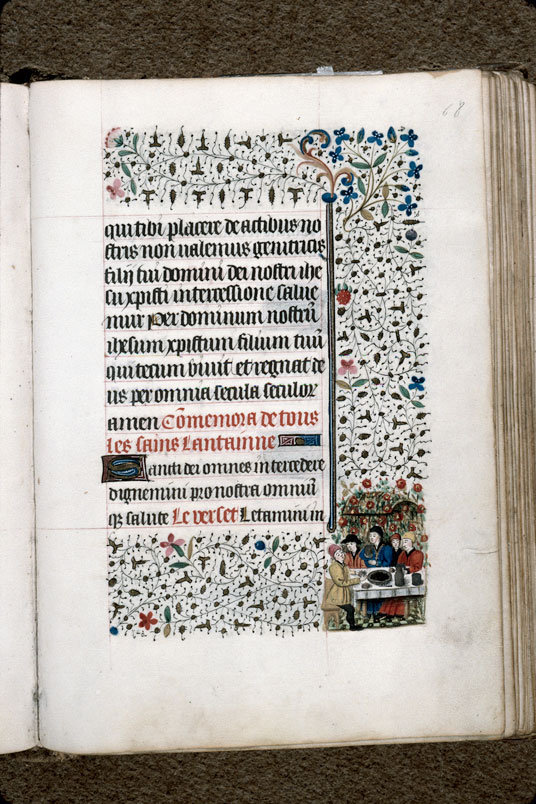 68
qui tibi placere de actibus no
stris non ualemus genitricis
filij tui domini dei nostri ihe
su xpisti intercessione salue
mur Per dominum nostrū
ihesum xpistum filium tuū
qui tecum viuit et regnat de
us per omnia secula seculor
amen Cōmemora de tous
les sains Lantainne
Sancti dei omnes intercedere
dignemini pro nostra omniū
q3 salute Le verset Letamini in